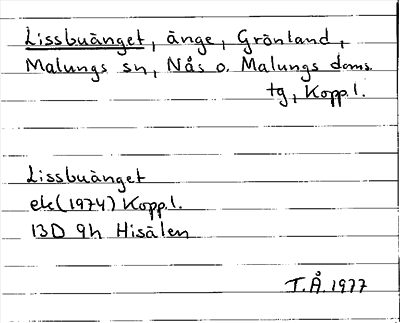 Lissbuänget, änge, Grönland,
Malungs sn, Nås o. Malungs doms.
tg, Kopp.l.
Lissbuänget
ek(1974) Kopp.l.
13D 9h Hisälen
T.Å.1977